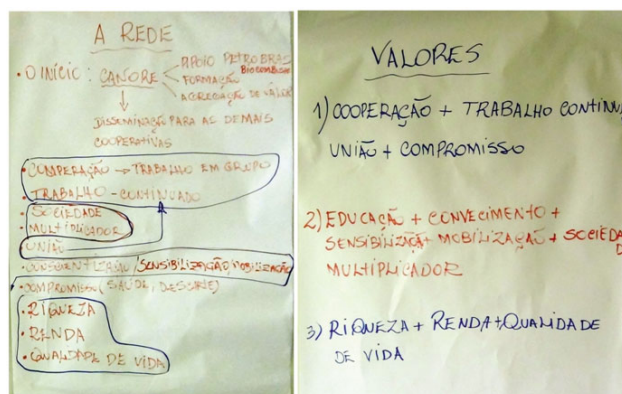 A REDE
• O INÍCIO: CANORE
APOIO PETROBRAS
BIOCOMBUSTÍVEL
FORMAÇÃO
AGREGAÇÃO DE VALOR
DISSEMINAÇÃO PARA AS DEMAIS
COOPERATIVAS
• COOPERAÇÃO → TRABALHO EM GRUPO
• TRABALHO - CONTINUADO
• SOCIEDADE
MULTIPLICADOR
UNIÃO
• CONSCIENTIZAÇÃO/SENSIBILIZAÇÃO MOBILIZAÇÃO
• COMPROMISSO (SAÚDE, DESCARTE)
• RIQUEZA
• RENDA
• QUALIDADE DE VIDA
VALORES
1) COOPERAÇÃO + TRABALHO CONTINU
UNIÃO + COMPROMISSO
2) EDUCAÇÃO + CONVECIMENTO +
SENSIBILIZAÇÃ+ MOBILIZAÇÃO + SOCIEDA
MULTIPLICADOR
3) RIQUEZA + RENDA+QUALIDADE
DE VIDA